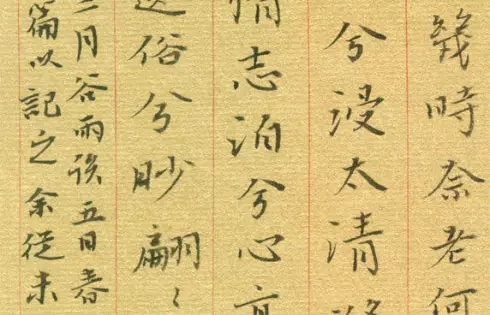 幾時奈老何
兮浸太清
志泊兮心
俗兮眇翩〻
三月谷雨後五日春
篇以記之余從未